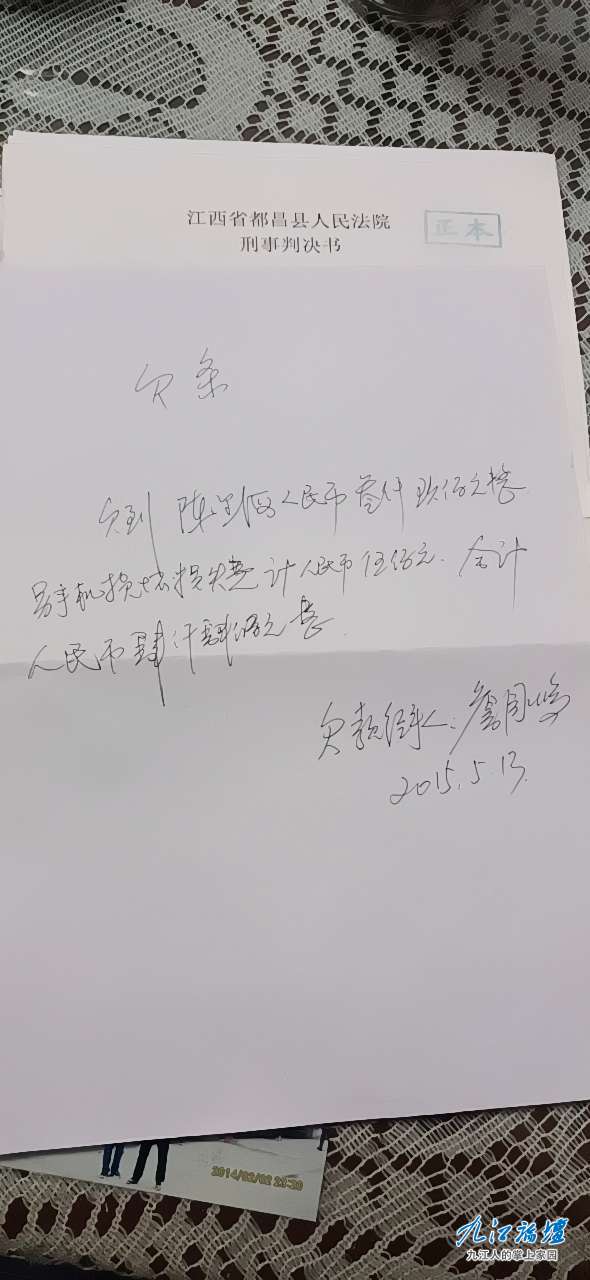 江西省都昌县人民法院
正本
刑事判决书
欠条
欠到 陈 人民币叁仟玖佰元整
另手机损坏损失费计人民币伍佰元. 合计
人民币肆仟肆佰元整.
欠款经手人: 詹国
2015.5.13.
2014/02/02 23:20
九江论坛
九江人的掌上家园